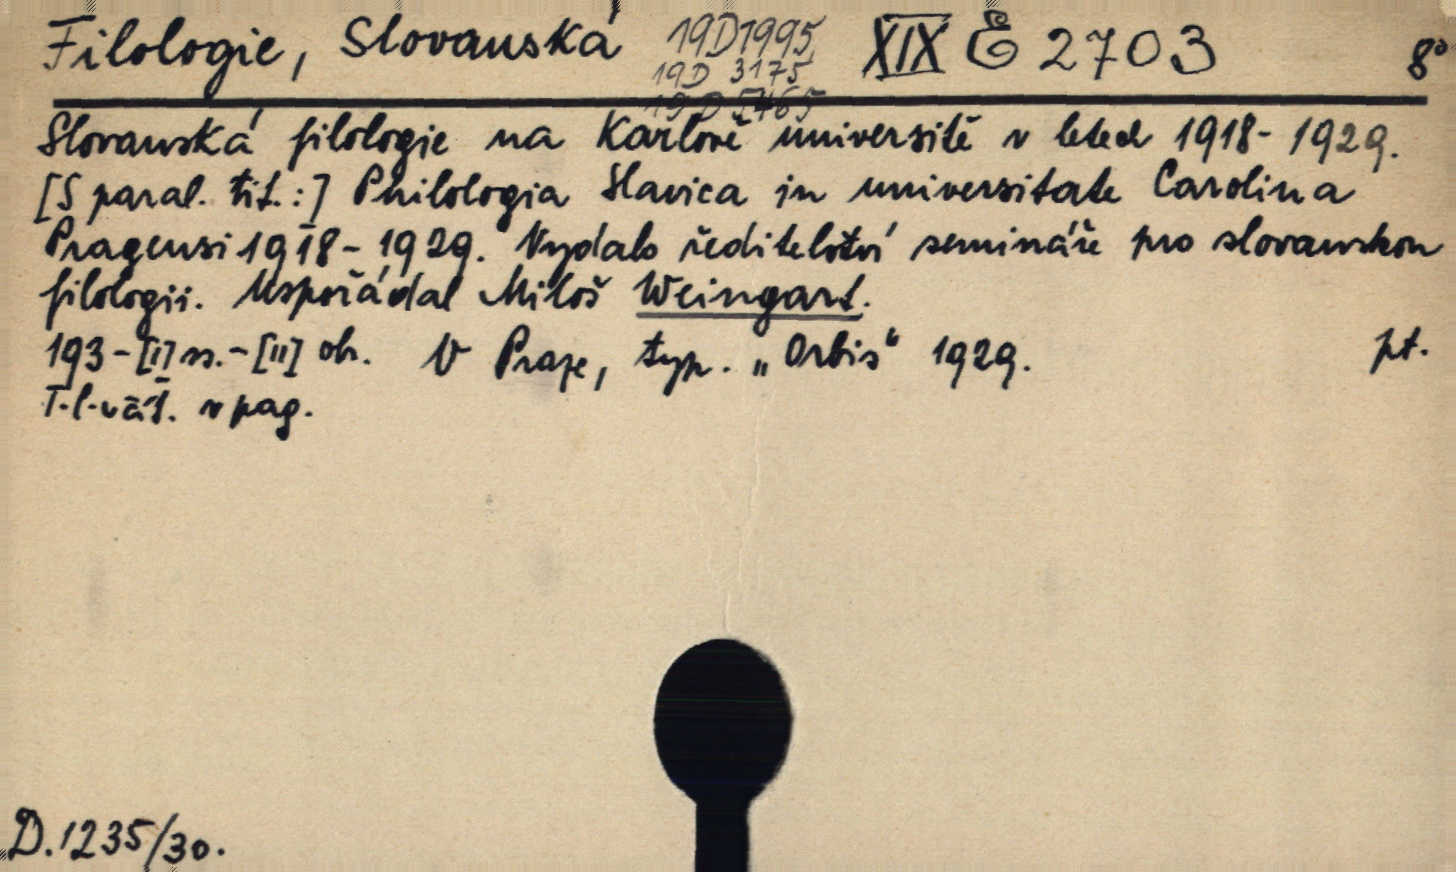 Filologie, Slovanská 19D1995 XIX E 2703 8°
19D 3175
19 D 5465
Slovanská filologie na Karlově universitě v letech 1918-1929.
[S paral. tit.:] Philologia Slavica in universitate Carolina
Pragensi 1918-1929. Vydalo ředitelství semináře pro slovanskou
filologii. Uspořádal Miloš Weingart.
193-[I] ss.-[II] ob. V Praze, typ. „Orbis“ 1929. pt.
T.l. v pag.
D.1235/30.